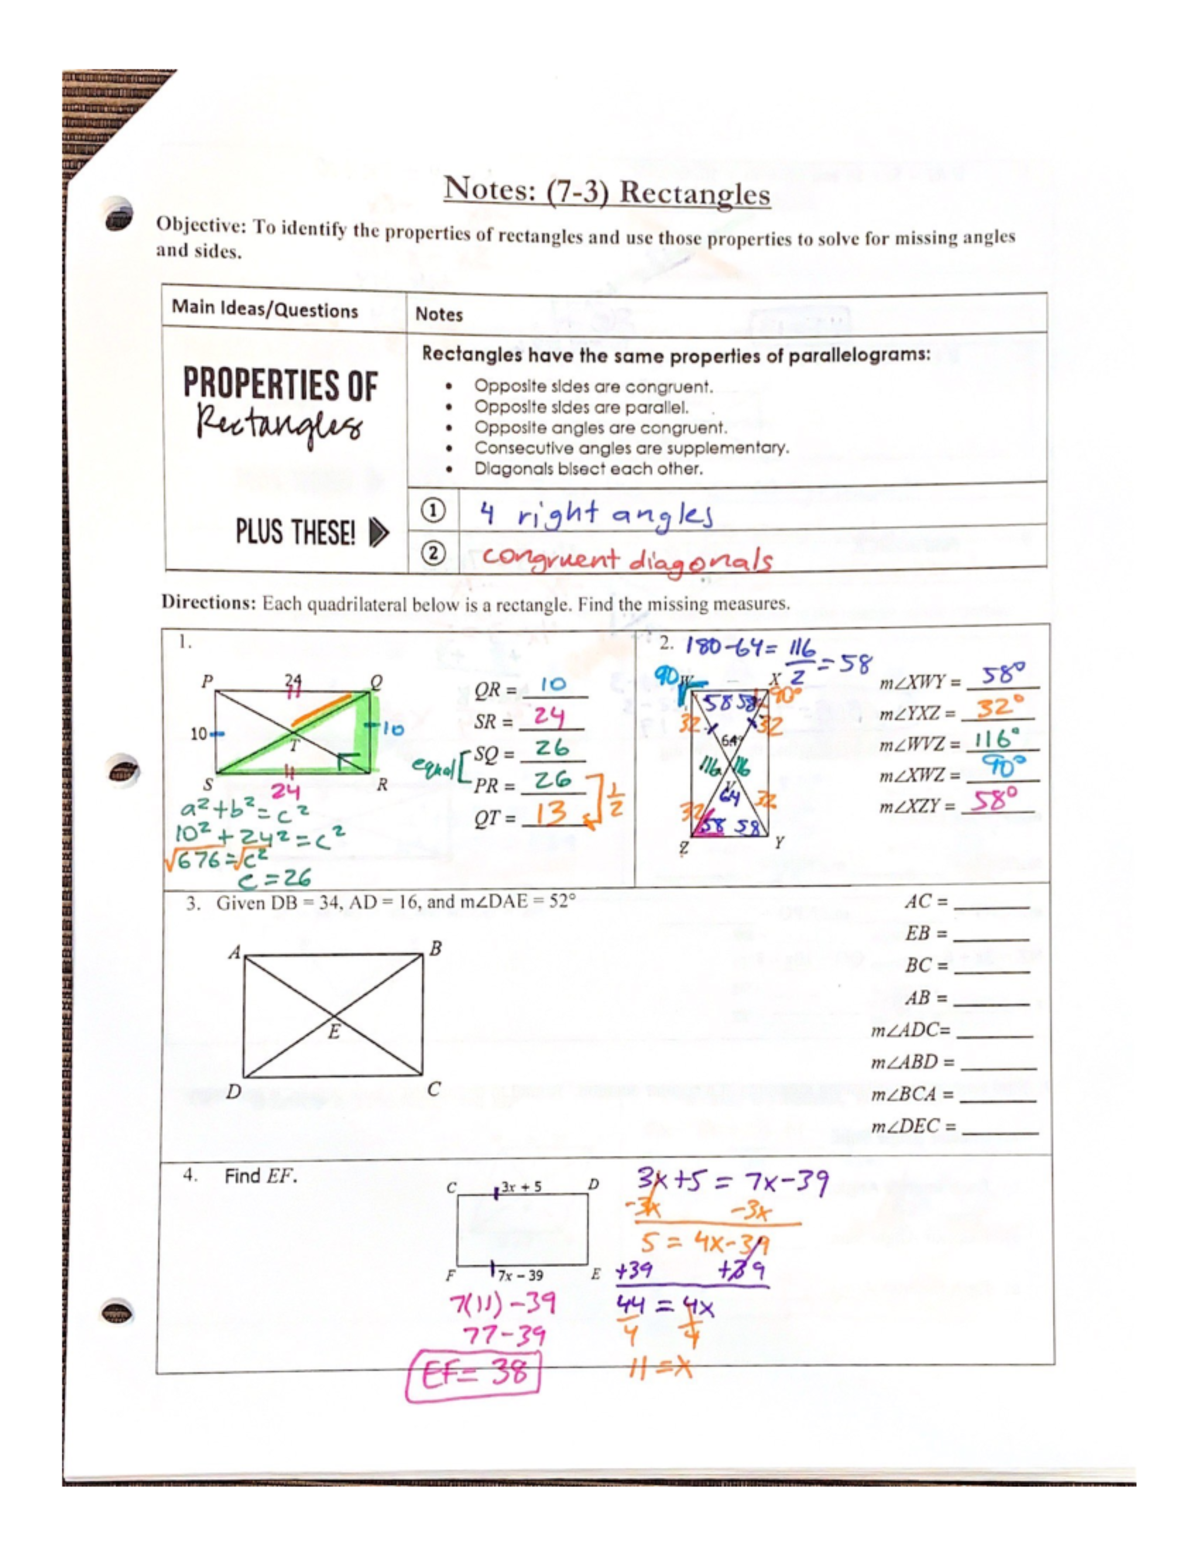 Notes: (7-3) Rectangles
Objective: To identify the properties of rectangles and use those properties to solve for missing angles
and sides.
Main Ideas/Questions
Notes
PROPERTIES OF
Rectangles
PLUS THESE!
Rectangles have the same properties of parallelograms:
• Opposite sides are congruent.
• Opposite sides are parallel.
• Opposite angles are congruent.
• Consecutive angles are supplementary.
• Diagonals bisect each other.
① 4 right angles
② congruent diagonals
Directions: Each quadrilateral below is a rectangle. Find the missing measures.
1.
P 24 Q
10 10
T
S 24 R
a²+b²=c²
10²+24²=c²
√676=√c²
c=26
QR = 10
SR = 24
equal[ SQ = 26
PR = 26
QT = 13 ] 1/2
2. 180-64= 116/2 =58
90 W X 90°
58 58
32 32
64°
116 116
V
64
32 32
58 58
Z Y
m∠XWY = 58°
m∠YXZ = 32°
m∠WVZ = 116°
m∠XWZ = 90°
m∠XZY = 58°
3. Given DB = 34, AD = 16, and m∠DAE = 52°
A B
E
D C
AC =
EB =
BC =
AB =
m∠ADC=
m∠ABD =
m∠BCA =
m∠DEC =
4. Find EF.
C 3x + 5 D
F 7x – 39 E
7(11)-39
77-39
EF= 38
3x+5 = 7x-39
-3x -3x
5 = 4x-39
+39 +39
44 = 4x
4 4
11=x